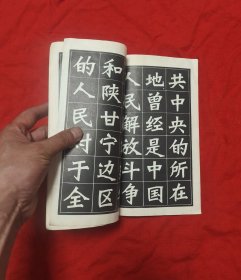 共中央的所在
地曾经是中国
人民解放斗争
和陕甘宁边区
的人民对于全